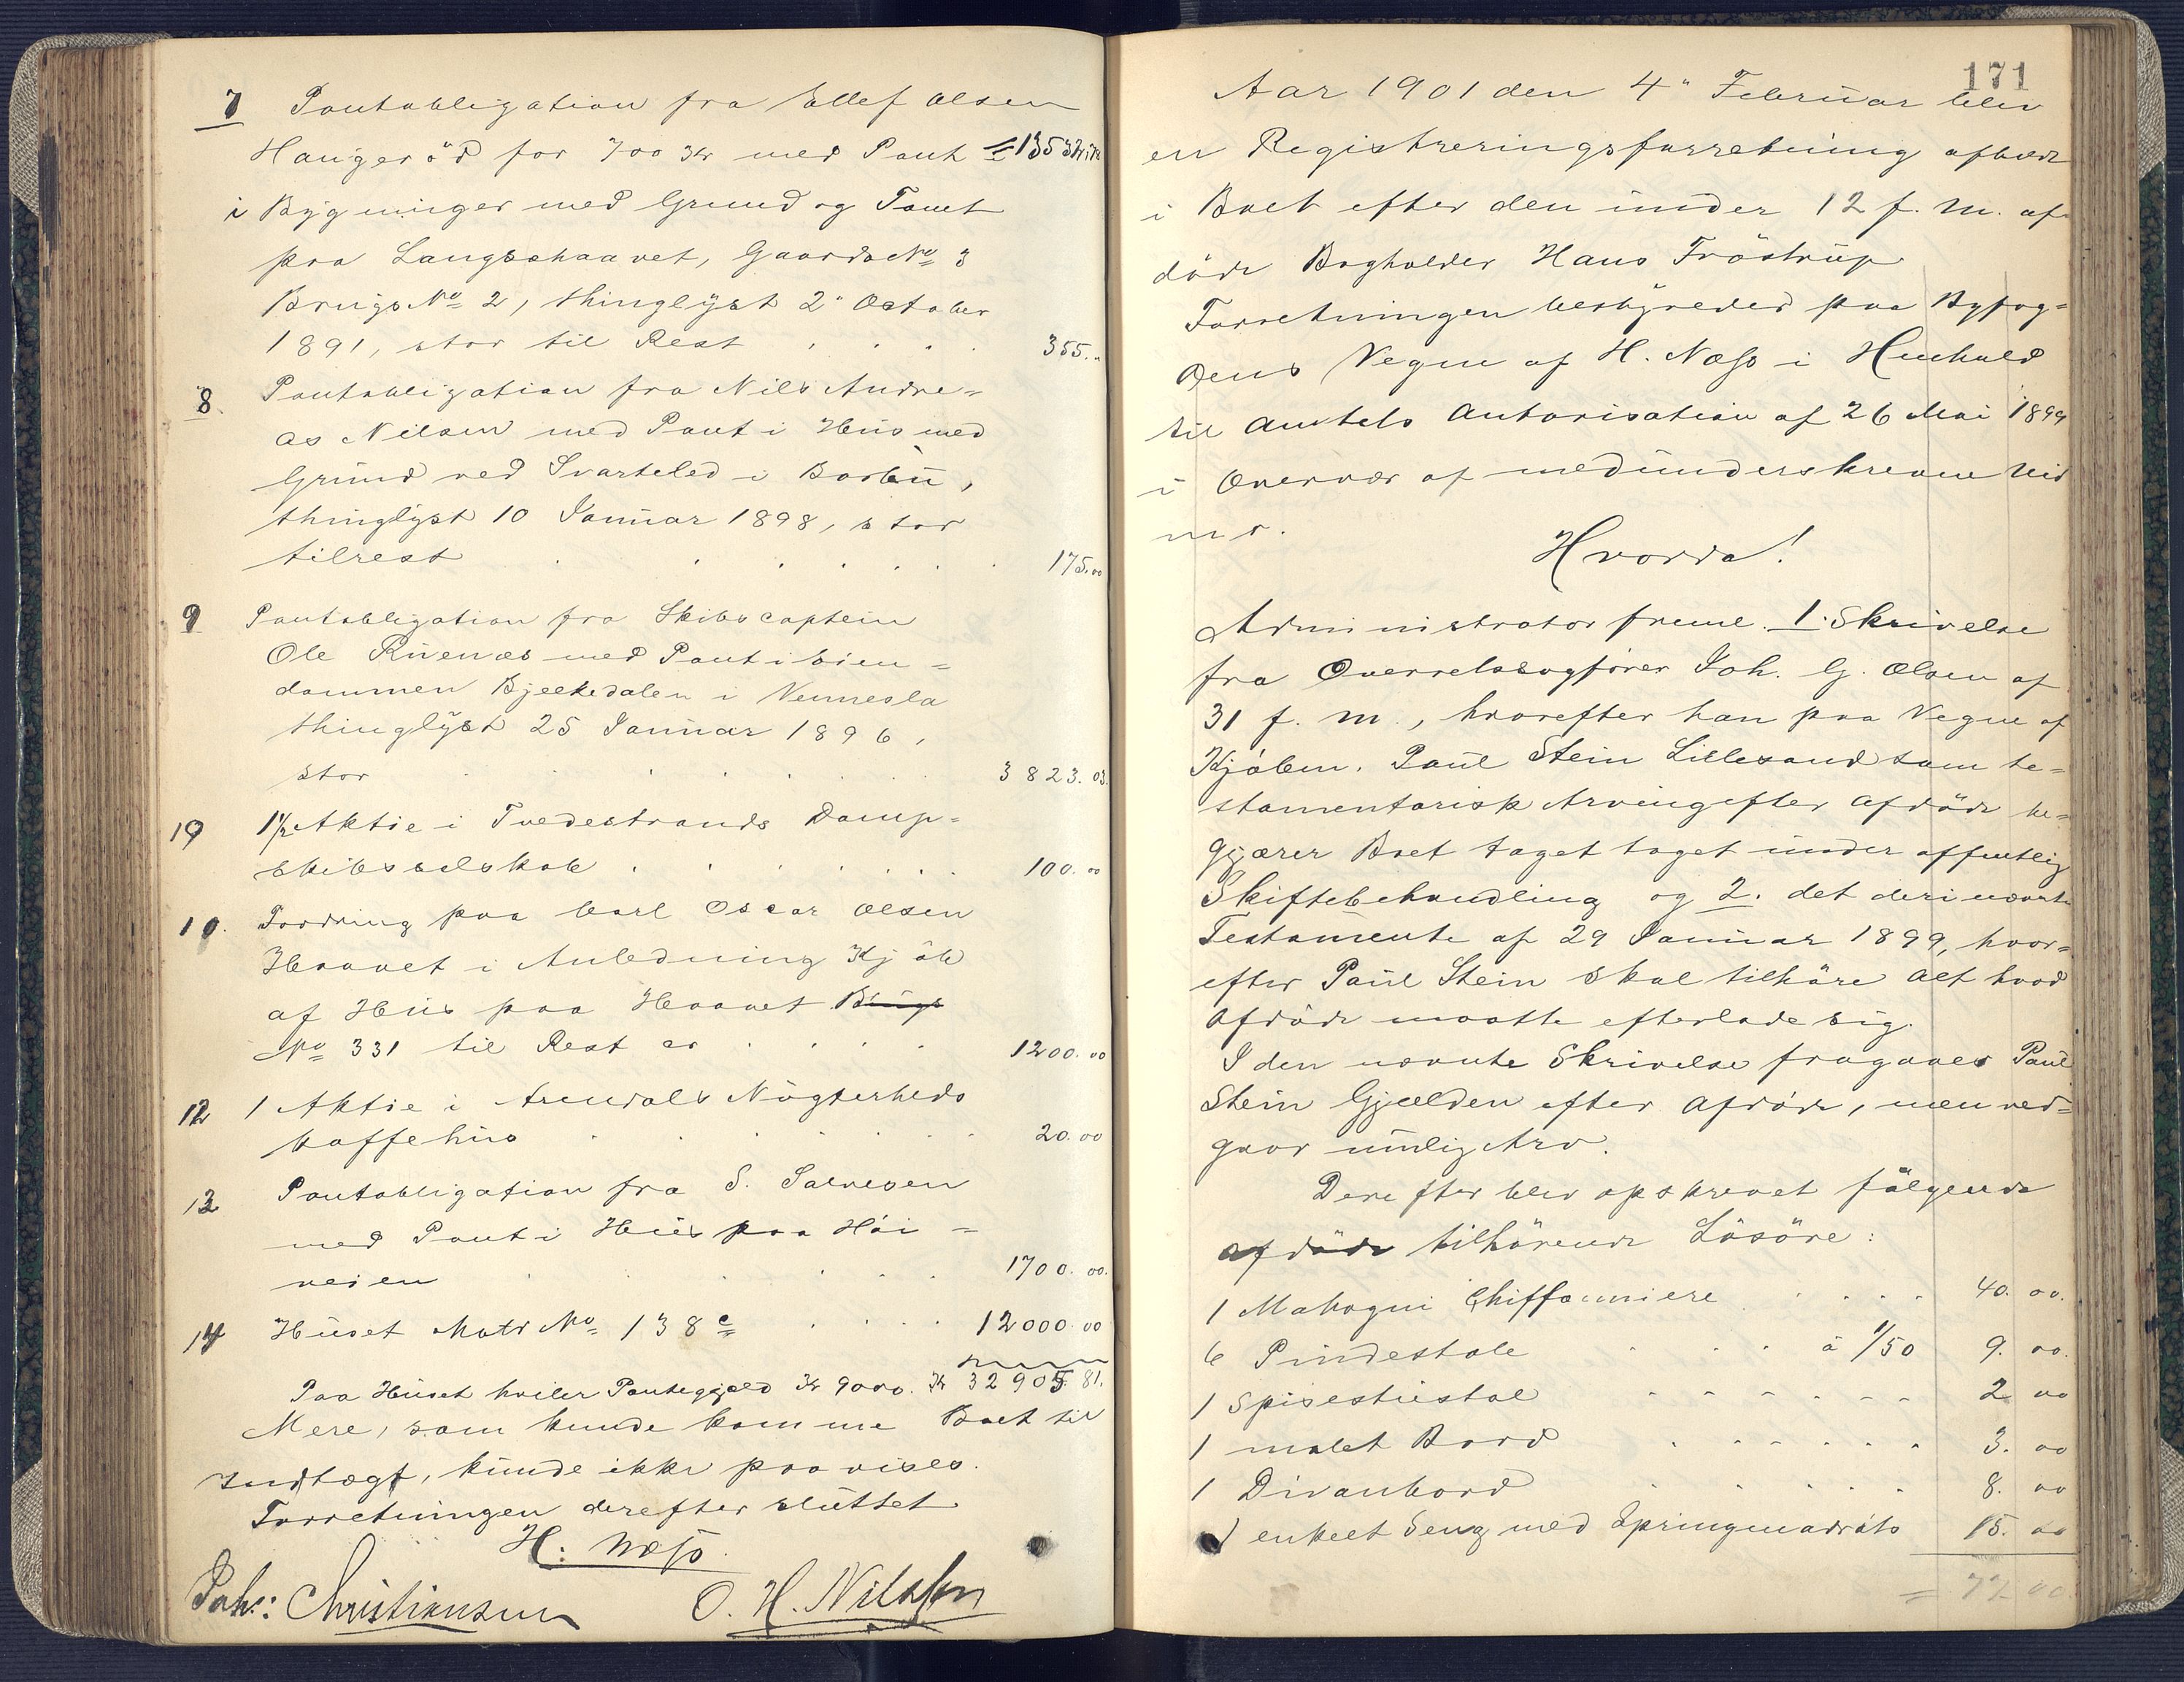 7 Pantobligation fra Ellef Olsen
Haugeröd for 700 Kr med Pant
i Bygninger med Grund og Tomt
paa Langsæhaavet, Gaards No 3
Brugs No 2, thinglyst 2" October
1891, stor til Rest 355."
8. Pantobligation fra Nils Andre=
as Nilsen med Pant i Hus med
Grund ved Svarteled i Barbu,
thinglyst 10 Januar 1898, stor
tilrest 175.00
9 Pantobligation fra Skibscaptein
Ole Ruenæs med Pant i Eien=
dommen Bjelkedalen i Vennesla
thinglyst 25 Januar 1896,
stor 3823.03.
10 1/2 Aktie i Tvedestrands Damp=
skibsselskab 100.00
10. Fordring paa Carl Oscar Olsen
Haavet i Anledning Kjöb
af Hus paa Haavet Brugs
No 331 til Rest er 1200.00
12 1 Aktie i Arendals Nögterheds
kaffehus 20.00
13 Pantobligation fra S. Salvesen
med Pant i Hus paa Höi=
veien 1700.00.
14 Huset Matr No 138c 12000.00
Paa Huset hviler Pantegjæld Kr 9000. Kr 32905.81.
Mere, som kunde komme Boet til
Indtægt, kunde ikke paavises.
Forretningen derefter sluttet
H. Næss.
Joh: Christiansen O. H. Nilssen
171
Aar 1901 den 4" Februar blev
en Registreringsforretning afholdt
i Boet efter den under 12 f. M. af
döde Bogholder Hans Fröstrup
Forretningen bestyredes paa Byfog=
dens Vegne af H. Næss i Henhold
til Amtets Autorisation af 26 Mai 1899
i Overvær af medunderskrevne Vid
ner.
Hvorda!
Administrator freml. 1. Skrivelse
fra Overretssagförer Joh. G. Olsen af
31 f. M., hvorefter han paa Vegne af
Kjöbm. Paul Stein Lillesand som te=
stamentarisk Arving efter Afdöde be=
gjærer Boet taget taget under offentlig
Skiftebehandling og 2. det deri nævnte
Testamente af 29 Januar 1899, hvor=
efter Paul Stein skal tilhöre alt hvad
Afdöde maatte efterlade sig.
I den nævnte Skrivelse fragaaes Paul
Stein Gjælden efter Afdöde, men ved=
gaar muelig Arv.
Derefter blev opskrevet fölgende
afdöde tilhörende Lösöre:
1 Mahogni Chiffonniere 40.00.
6 Pindestole á 1/50 9.00.
1 Spisestuestol 2 00
1 malet Bord 3.00
1 Divanbord 8.00
1 enkelt Seng med Springmadrats 15.00
= 77.00